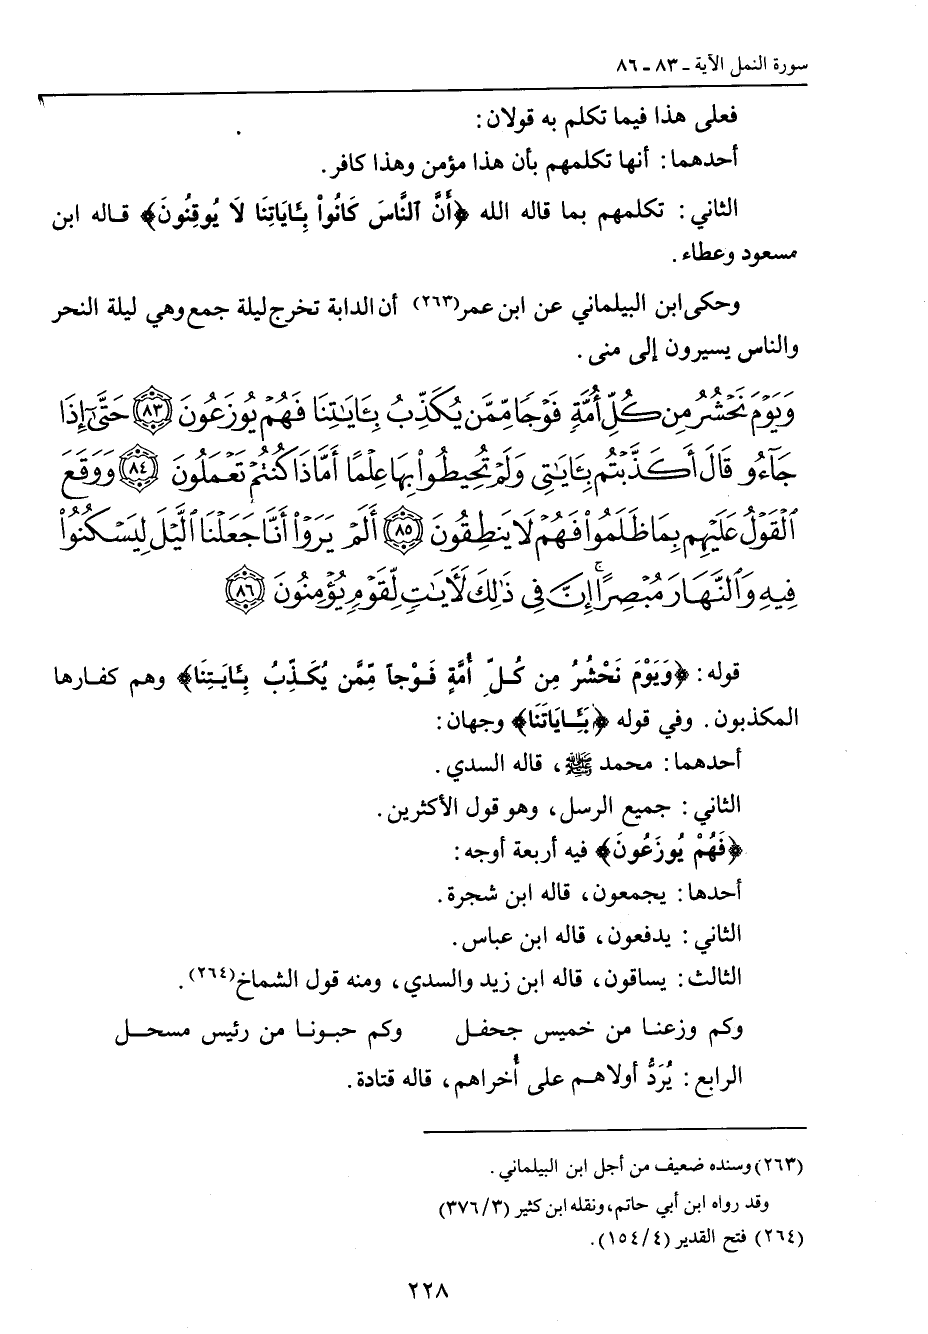 سورة النمل الآية ـ ٨٣ ـ ٨٦
فعلى هذا فيما تكلم به قولان:
أحدهما: أنها تكلمهم بأن هذا مؤمن وهذا كافر.
الثاني: تكلمهم بما قاله الله ﴿أَنَّ ٱلنَّاسَ كَانُواْ بِـَٔايَاتِنَا لَا يُوقِنُونَ﴾ قاله ابن
مسعود وعطاء.
وحكى ابن البيلماني عن ابن عمر(٢٦٣) أن الدابة تخرج ليلة جمع وهي ليلة النحر
والناس يسيرون إلى منى.
وَيَوْمَ نَحْشُرُ مِن كُلِّ أُمَّةٍ فَوْجًا مِّمَّن يُكَذِّبُ بِـَٔايَـٰتِنَا فَهُمْ يُوزَعُونَ ٨٣ حَتَّىٰٓ إِذَا
جَآءُو قَالَ أَكَذَّبْتُم بِـَٔايَـٰتِى وَلَمْ تُحِيطُوا۟ بِهَا عِلْمًا أَمَّاذَا كُنتُمْ تَعْمَلُونَ ٨٤ وَوَقَعَ
ٱلْقَوْلُ عَلَيْهِم بِمَا ظَلَمُوا۟ فَهُمْ لَا يَنطِقُونَ ٨٥ أَلَمْ يَرَوْا۟ أَنَّا جَعَلْنَا ٱلَّيْلَ لِيَسْكُنُوا۟
فِيهِ وَٱلنَّهَارَ مُبْصِرًا ۚ إِنَّ فِى ذَٰلِكَ لَـَٔايَـٰتٍ لِّقَوْمٍ يُؤْمِنُونَ ٨٦
قوله: ﴿وَيَوْمَ نَحْشُرُ مِن كُلِّ أُمَّةٍ فَوْجاً مِّمَّن يُكَذِّبُ بِـَٔايَـتِنَا﴾ وهم كفارها
المكذبون. وفي قوله ﴿بِـَٔايَاتَنَا﴾ وجهان:
أحدهما: محمد ﷺ، قاله السدي.
الثاني: جميع الرسل، وهو قول الأكثرين.
﴿فَهُمْ يُوزَعُونَ﴾ فيه أربعة أوجه:
أحدها: يجمعون، قاله ابن شجرة.
الثاني: يدفعون، قاله ابن عباس.
الثالث: يساقون، قاله ابن زيد والسدي، ومنه قول الشماخ(٢٦٤).
وكم وزعنا من خميس جحفل وكم حبونا من رئيس مسحل
الرابع: يُرَدُّ أولاهم على أُخراهم، قاله قتادة.
(٢٦٣) وسنده ضعيف من أجل ابن البيلماني.
وقد رواه ابن أبي حاتم، ونقله ابن كثير (٣/ ٣٧٦)
(٢٦٤) فتح القدير (٤/ ١٥٤).
٢٢٨